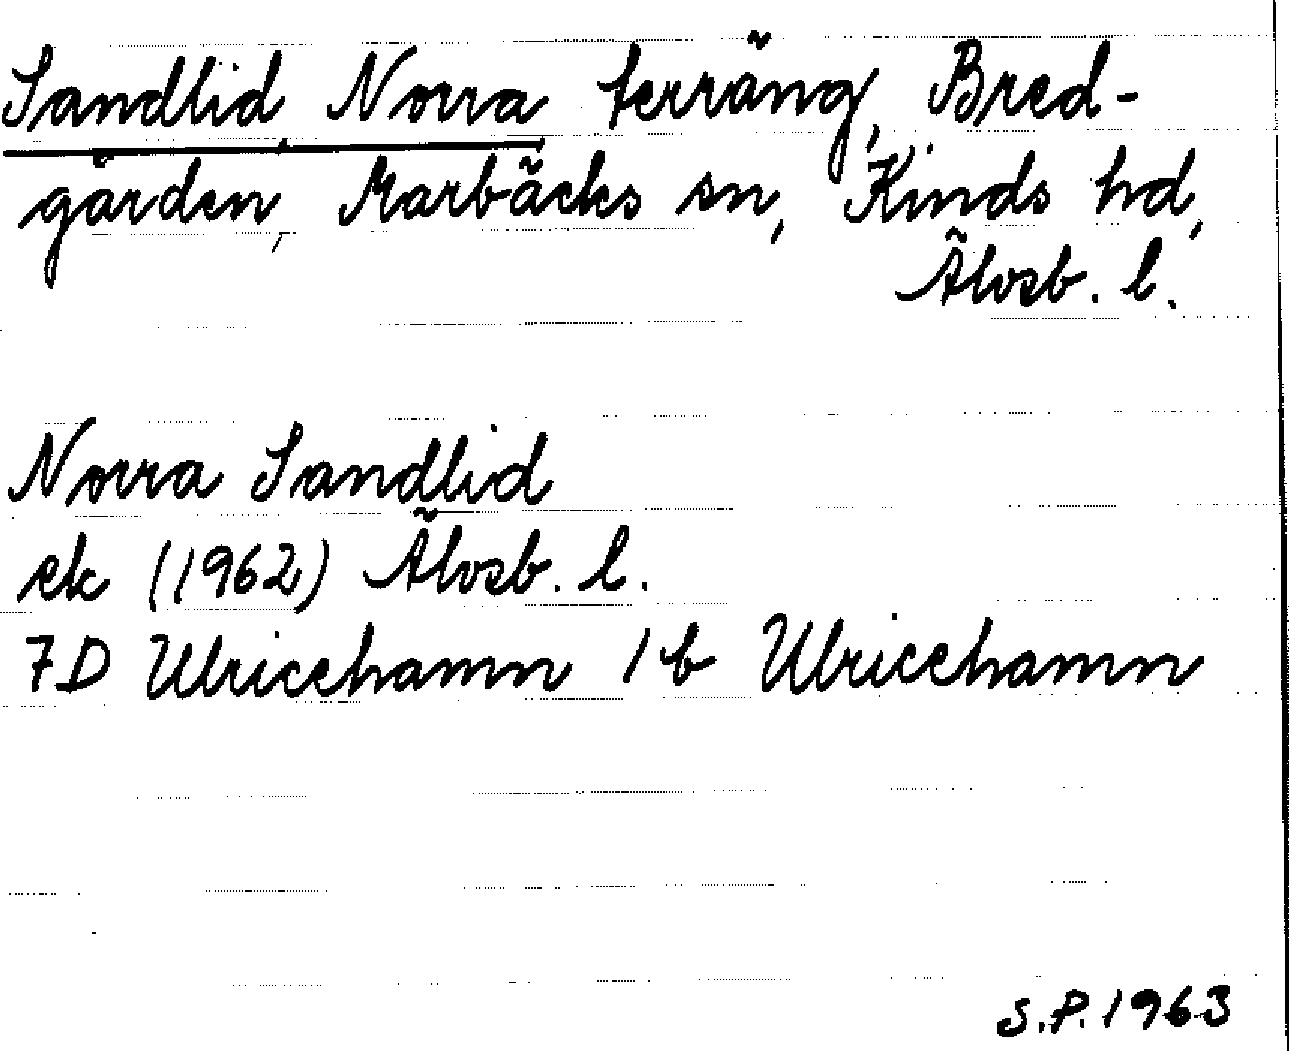 Sandlid, Norra terräng, Bred-
gården, Marbäcks sn, Kinds hd,
Älvsb. l.
Norra Sandlid
ek (1962) Älvsb. l.
7D Ulricehamn 1b Ulricehamn
S.P. 1963